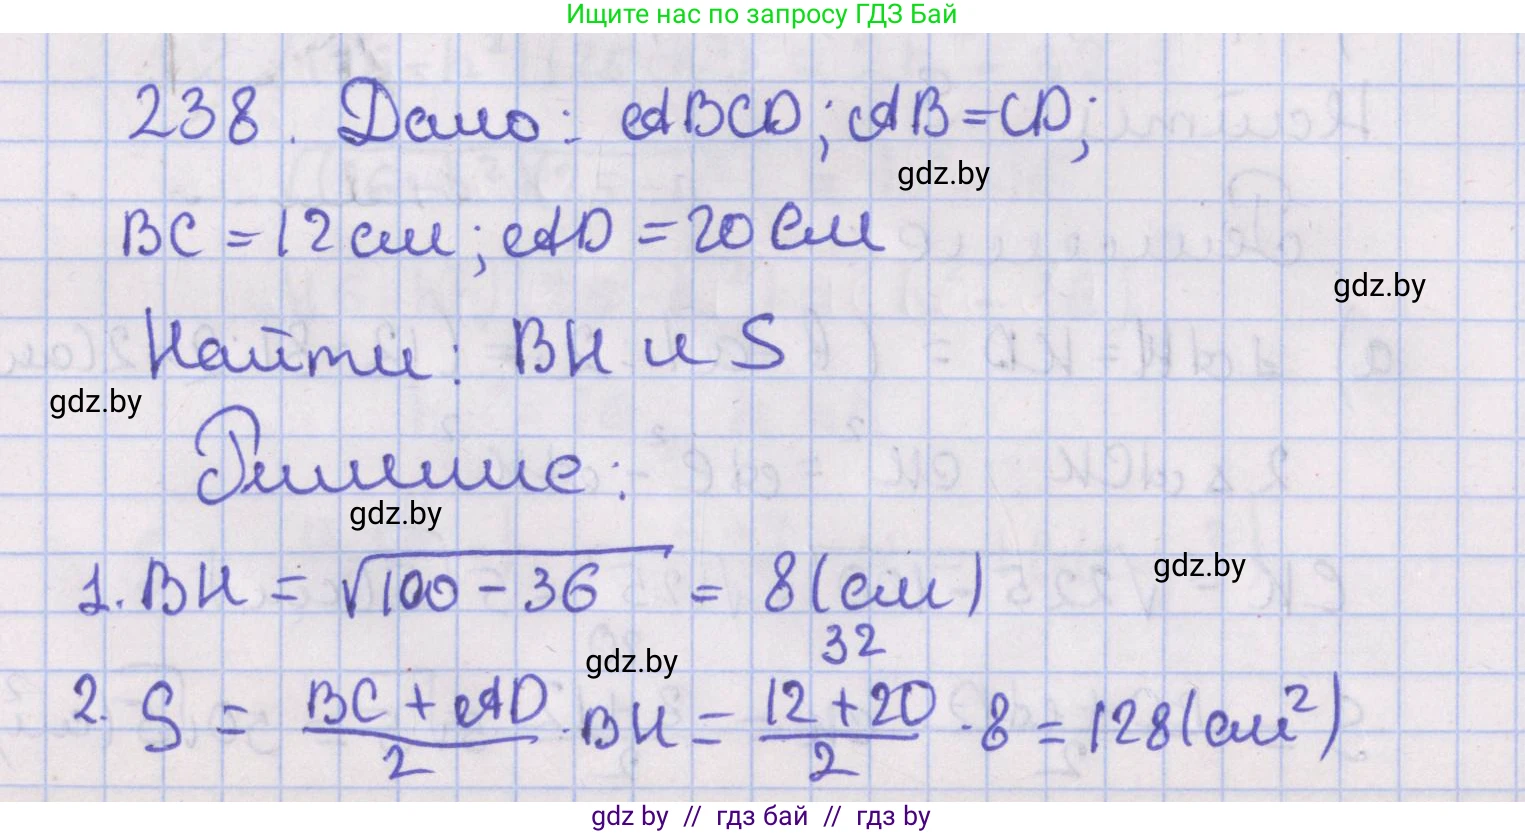 Ищите нас по запросу ГДЗ Бай
238. Дано: ABCD; AB = CD;
gdz.by
BC = 12 см; AD = 20 см
gdz.by
Найти: BH и S
gdz.by
Решение:
gdz.by
1. BH = √100 - 36 = 8 (см)
gdz.by
32
gdz.by
2. S = BC + AD / 2 · BH = 12 + 20 / 2 · 8 = 128 (см²)
gdz by // гдз бай // гдз by